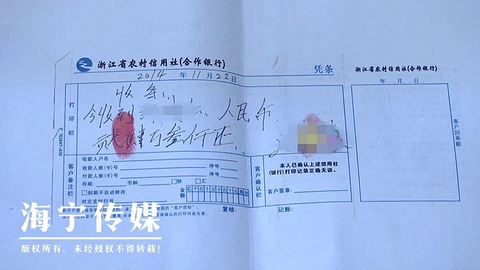 浙江省农村信用社(合作银行)
凭条
浙江省农村信用社(合作银行)
2014 年 11 月 22 日
年 月 日
打印栏
收条
今收到 人民币
贰肆万叁仟
本人已确认上述信用社
(银行)打印记录正确无误。
客户确认栏
客户签章:
客户回单联
客户备注栏
收款人户名
收款人账(卡)号
序号
付款人账(卡)号
序号
存期:
币种
钞
汇
金
到期不自动转存
对方支付行号
复核:
记账:
海宁传媒
版权所有,未经授权不得转载!